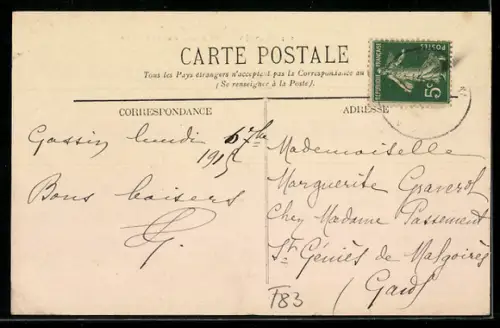 CARTE POSTALE
Tous les Pays étrangers n'acceptent pas la Correspondance au
(Se renseigner à la Poste).
CORRESPONDANCE
ADRESSE
POSTES
REPUBLIQUE FRANÇAISE
5c
Gassin lundi 6 7bre
Bons baisers
Mademoiselle
Marguerite Graverol
Chez Madame Passement
St Géniès de Malgoirès
(Gard)
F83